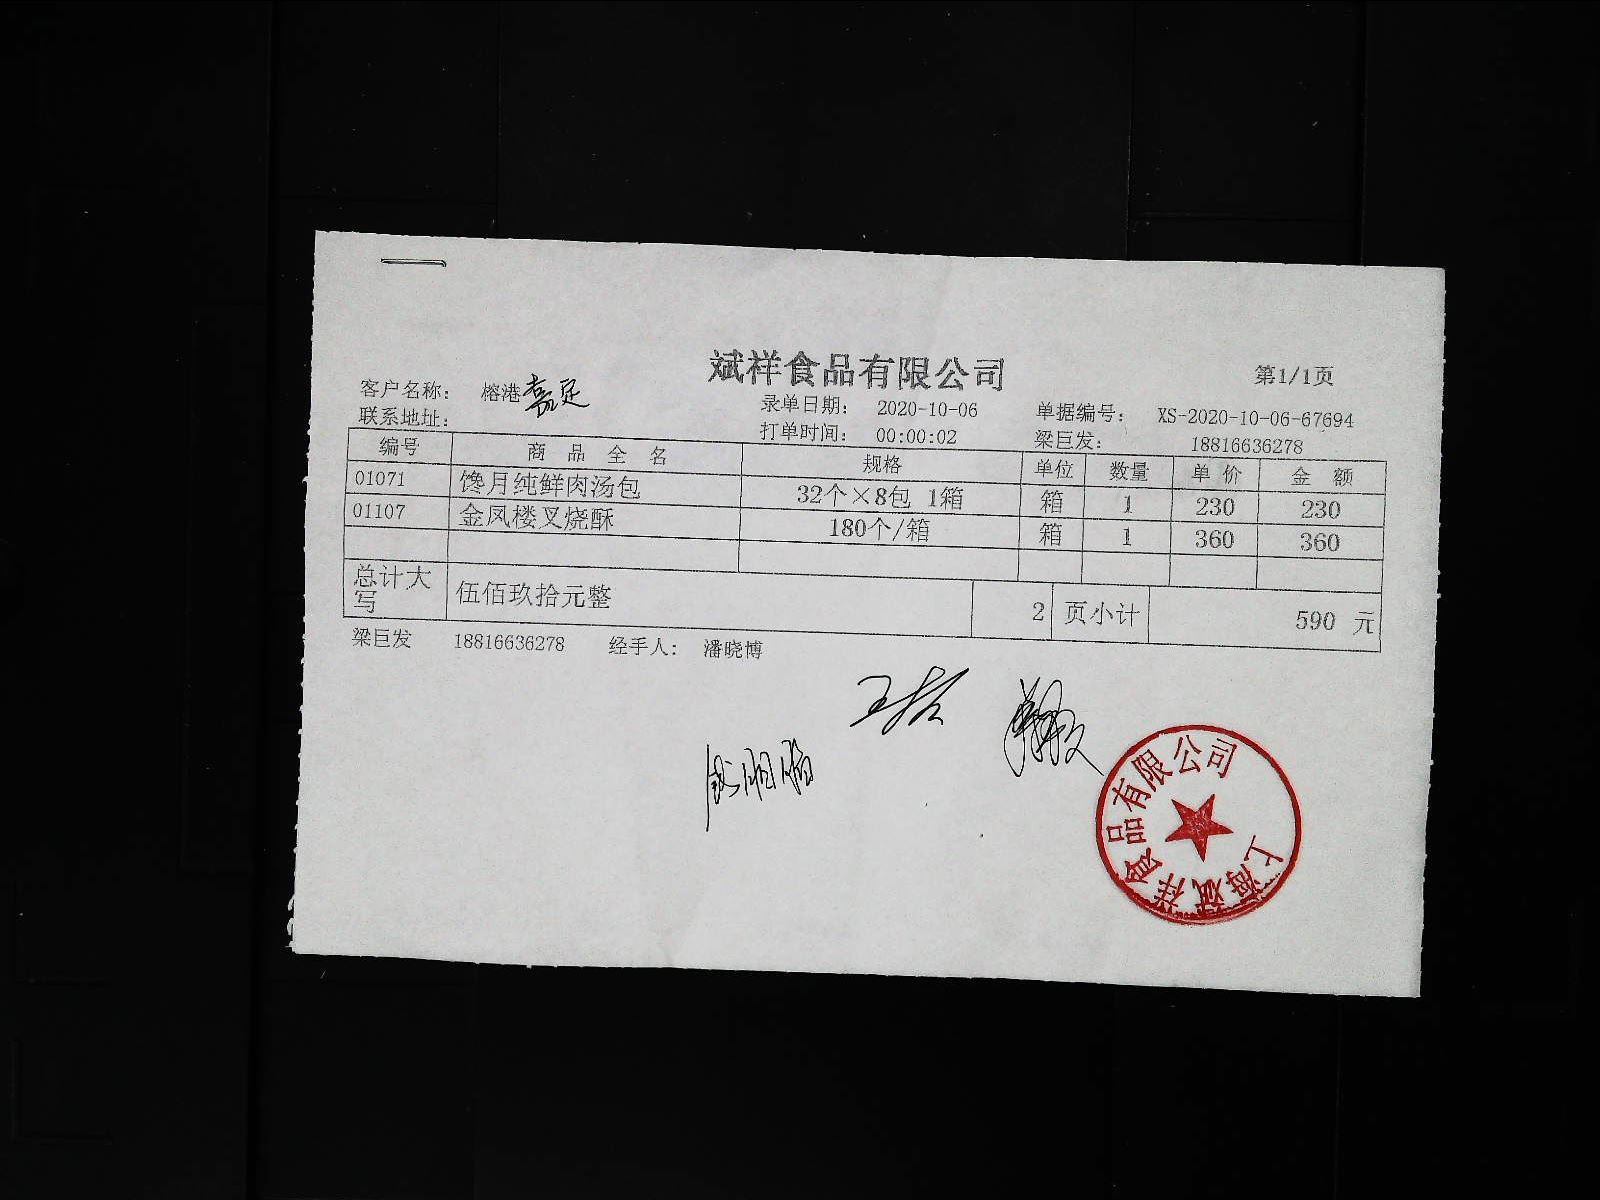 斌祥食品有限公司
第1/1页
客户名称： 榕港嘉定
录单日期： 2020-10-06
单据编号： XS-2020-10-06-67694
联系地址：
打单时间： 00:00:02
梁巨发： 18816636278
编号 商品全名 规格 单位 数量 单价 金额
01071 馋月纯鲜肉汤包 32个×8包 1箱 箱 1 230 230
01107 金凤楼叉烧酥 180个/箱 箱 1 360 360
总计大写 伍佰玖拾元整 2 页小计 590 元
梁巨发 18816636278 经手人： 潘晓博
上海斌祥食品有限公司